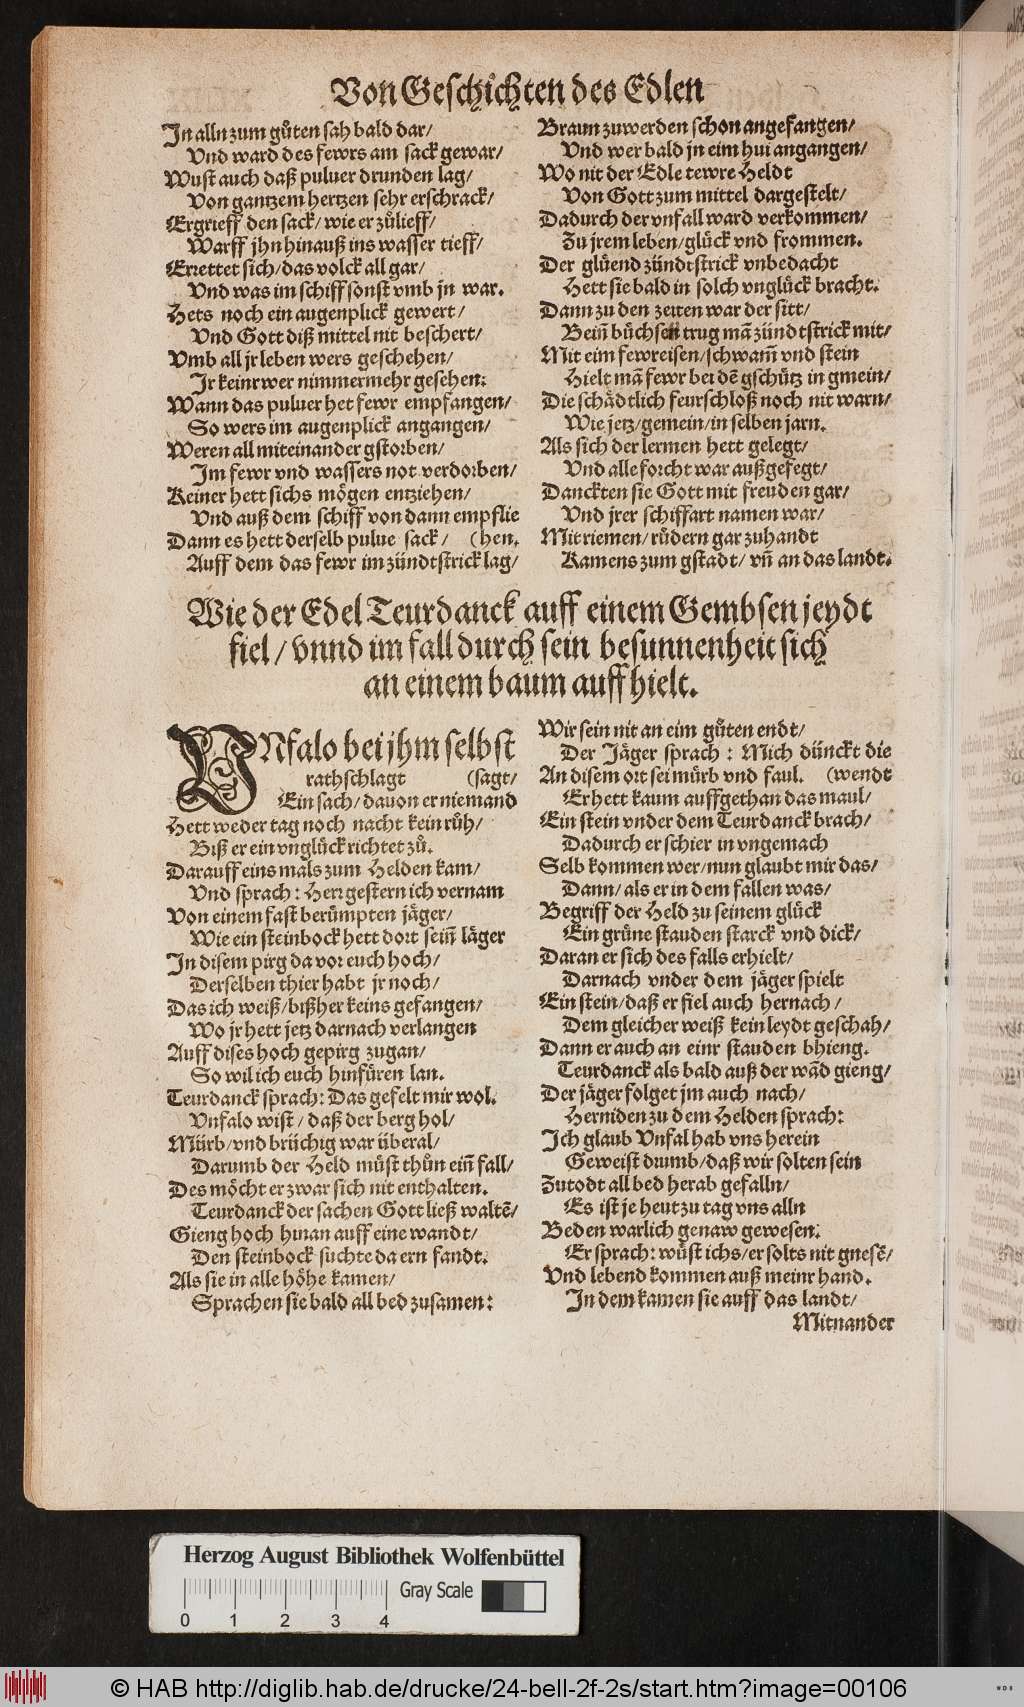 Von Geschichten des Edlen
In alln zum gůten sah bald dar/
Vnd ward des fewrs am sack gewar/
Wust auch daß puluer drunden lag/
Von gantzem hertzen sehr erschrack/
Ergrieff den sack/ wie er zůlieff/
Warff jhn hinauß ins wasser tieff/
Errettet sich/ das volck all gar/
Vnd was im schiff sonst vmb jn war.
Hets noch ein augenplick gewert/
Vnd Gott diß mittel nit beschert/
Vmb all jr leben wers geschehen/
Jr keinr wer nimmermehr gesehen:
Wann das puluer het fewr empfangen/
So wers im augenplick angangen/
Weren all miteinander gstorben/
Im fewr vnd wassers not verdorben/
Keiner hett sichs mögen entziehen/
Vnd auß dem schiff von dann empflie
Dann es hett derselb pulue sack/ (hen.
Auff dem das fewr im zündtstrick lag/
Braun zuwerden schon angefangen/
Vnd wer bald jn eim hui angangen/
Wo nit der Edle tewre Heldt
Von Gott zum mittel dargestelt/
Dadurch der vnfall ward verkommen/
Zu jrem leben/ glück vnd frommen.
Der glüend zündtstrick vnbedacht
Hett sie bald in solch vnglück bracht.
Dann zu den zeiten war der sitt/
Bein̄ büchsen trug mā zündtstrick mit/
Mit eim fewreisen/ schwam̄ vnd stein
Hielt mā fewr bei dē gschütz in gmein/
Die schädtlich feurschloß noch nit warn/
Wie jetz/ gemein/ in selben jarn.
Als sich der lermen hett gelegt/
Vnd alle forcht war außgefegt/
Danckten sie Gott mit freuden gar/
Vnd jrer schiffart namen war/
Mit riemen/ rüdern gar zuhandt
Kamens zum gstadt/ vn̄ an das landt.
Wie der Edel Teurdanck auff einem Gembsen jeydt
fiel/ vnnd im fall durch sein besunnenheit sich
an einem baum auff hielt.
VNfalo bei jhm selbst
rathschlagt (sagt/
Ein sach/ dauon er niemand
Hett weder tag noch nacht kein růh/
Biß er ein vnglück richtet zů.
Darauff eins mals zum Helden kam/
Vnd sprach: Herr gestern ich vernam
Von einem fast berümpten jäger/
Wie ein steinbock hett dort sein̄ läger
In disem pirg da vor euch hoch/
Derselben thier habt jr noch/
Das ich weiß/ bißher keins gefangen/
Wo jr hett jetz darnach verlangen
Auff dises hoch gepirg zugan/
So wil ich euch hinfüren lan.
Teurdanck sprach: Das gefelt mir wol.
Vnfalo wist/ daß der berg hol/
Mürb/ vnd brüchig war überal/
Darumb der Held můst thůn ein̄ fall/
Des möcht er zwar sich nit enthalten.
Teurdanck der sachen Gott ließ waltē/
Gieng hoch hinan auff eine wandt/
Den steinbock suchte da ern fandt.
Als sie in alle höhe kamen/
Sprachen sie bald all bed zusamen:
Wir sein nit an eim gůten endt/
Der Jäger sprach: Mich dünckt die
An disem ort sei mürb vnd faul. (wendt
Er hett kaum auffgethan das maul/
Ein stein vnder dem Teurdanck brach/
Dadurch er schier in vngemach
Selb kommen wer/ nun glaubt mir das/
Dann/ als er in dem fallen was/
Begriff der Held zu seinem glück
Ein grüne stauden starck vnd dick/
Daran er sich des falls erhielt/
Darnach vnder dem jäger spielt
Ein stein/ daß er fiel auch hernach/
Dem gleicher weiß kein leydt geschah/
Dann er auch an einr stauden bhieng.
Teurdanck als bald auß der wād gieng/
Der jäger folget jm auch nach/
Herniden zu dem Helden sprach:
Ich glaub Vnfal hab vns herein
Geweist drumb/ daß wir solten sein
Zutodt all bed herab gefalln/
Es ist je heut zu tag vns alln
Beden warlich genaw gewesen.
Er sprach: wüst ichs/ er solts nit gnesē/
Vnd lebend kommen auß meinr hand.
In dem kamen sie auff das landt/
Mitnander
Herzog August Bibliothek Wolfenbüttel
Gray Scale
0 1 2 3 4
© HAB http://diglib.hab.de/drucke/24-bell-2f-2s/start.htm?image=00106